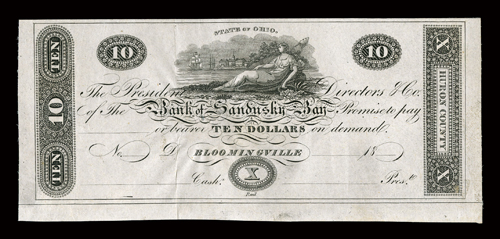 STATE OF OHIO.
10 10
TEN 10 TEN
X HURON COUNTY X
The President Directors & Co.
of The Bank of Sandusky Bay Promise to pay
or bearer TEN DOLLARS on demand.
No. D BLOOMINGVILLE 18
Cash.r X Pres.t